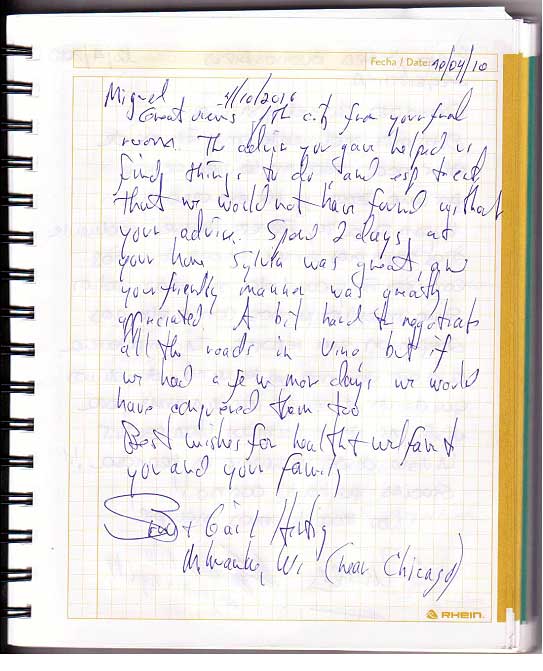 Fecha / Date: 10/04/10
Miguel 4/10/2010
Great views of the city from your
room. The advise you gave helped us
find things to do, and
that we would not have found without
your advise. 2 days at
your home Sylvia was great, and
your friendly manner was greatly
A bit hard to negotiate
all the roads in Vina but if
we had a few more days we would
have conquered them too
Best wishes for health + welfare to
you and your family
+ Gail
Milwaukee, Wi (near Chicago)
RHEIN